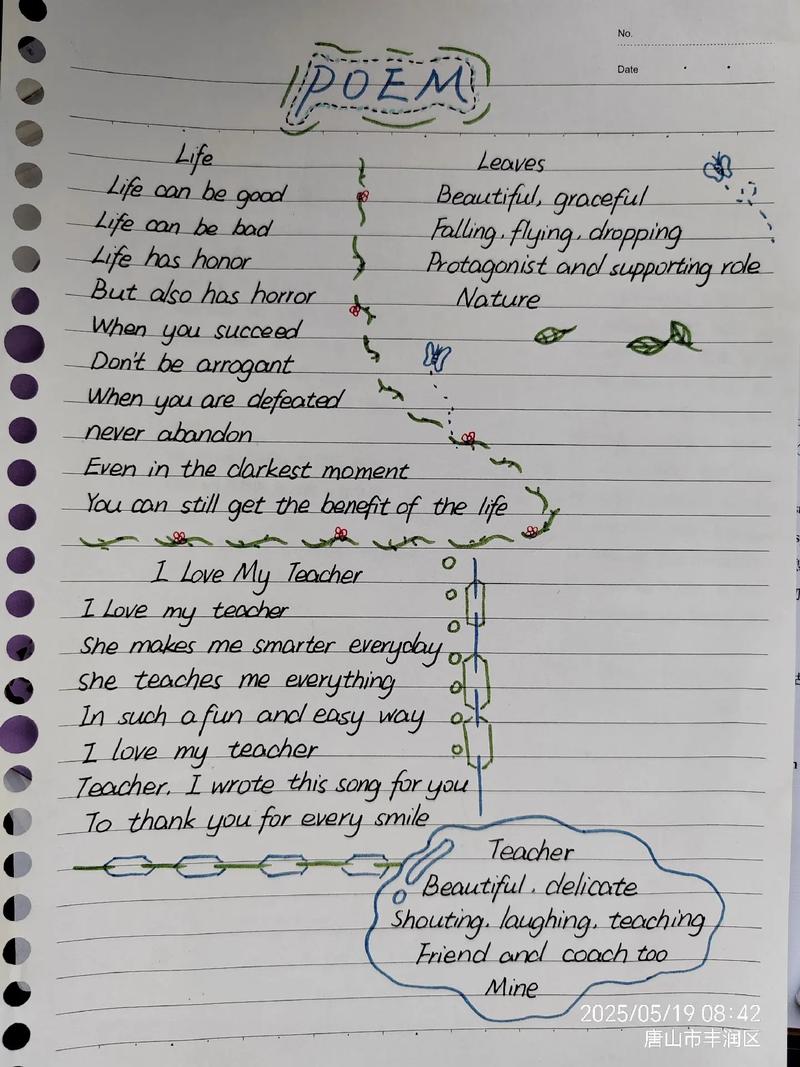 No.
Date
POEM
Life
Life can be good
Life can be bad
Life has honor
But also has horror
When you succeed
Don't be arrogant
When you are defeated
never abandon
Even in the darkest moment
You can still get the benefit of the life
Leaves
Beautiful, graceful
Falling, flying, dropping
Protagonist and supporting role
Nature
I Love My Teacher
I Love my teacher
She makes me smarter everyday
She teaches me everything
In such a fun and easy way
I love my teacher
Teacher, I wrote this song for you
To thank you for every smile
Teacher
Beautiful, delicate
Shouting, laughing, teaching
Friend and coach too
Mine
2025/05/19 08:42
唐山市丰润区